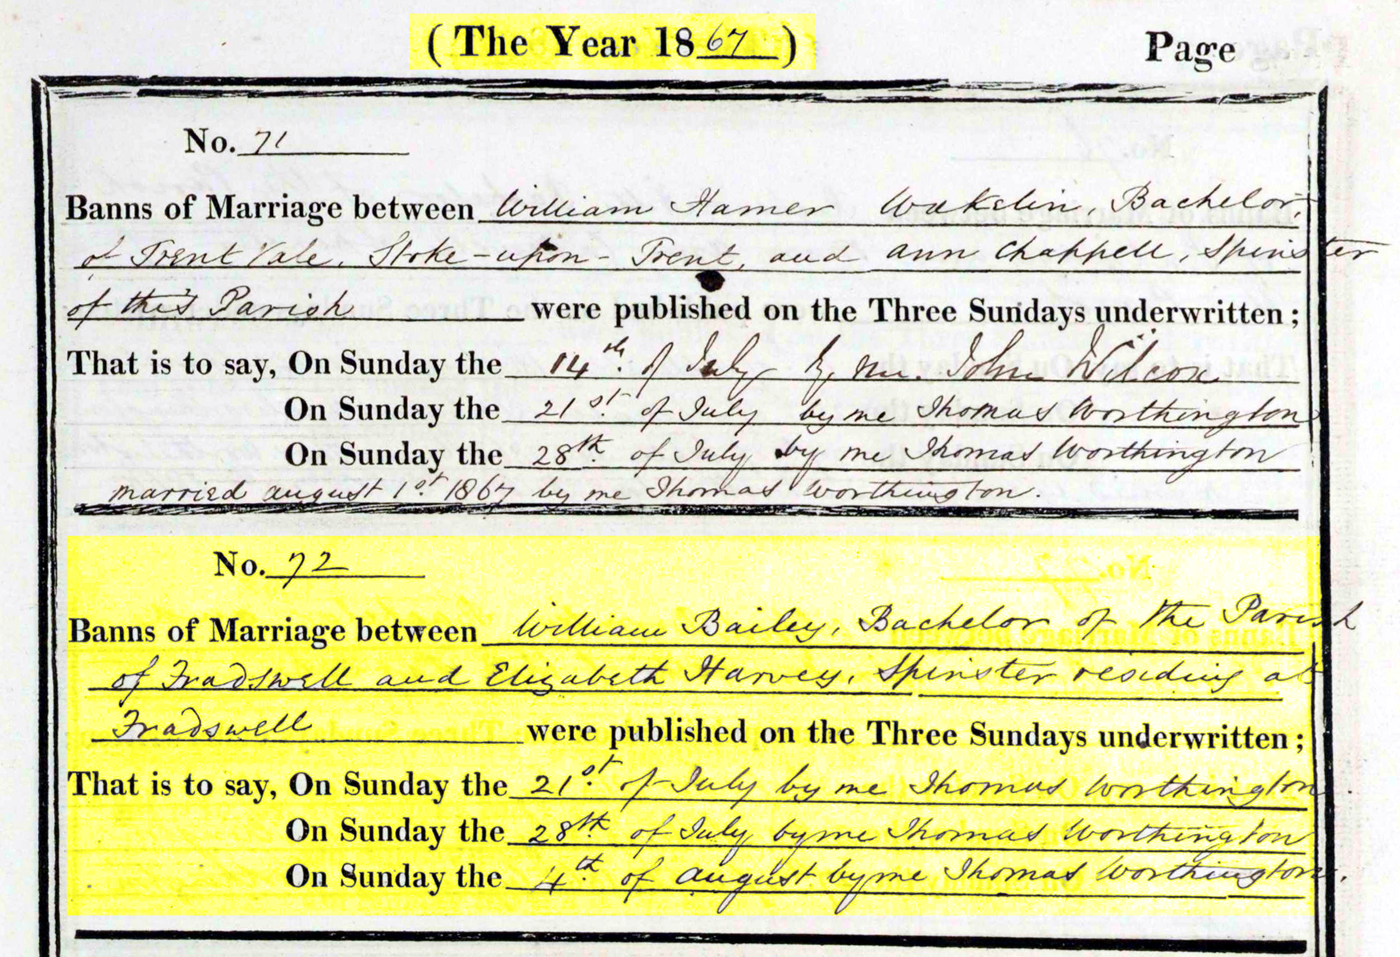 ( The Year 1867 )
Page
No. 71
Banns of Marriage between William Hamer Wakelin, Bachelor,
of Trent Vale, Stoke-upon-Trent, and Ann Chappell, Spinster
of this Parish were published on the Three Sundays underwritten;
That is to say, On Sunday the 14th of July by me. John Wilcox
On Sunday the 21st of July by me Thomas Worthington
On Sunday the 28th of July by me Thomas Worthington
married August 1st 1867 by me Thomas Worthington.
No. 72
Banns of Marriage between William Bailey, Bachelor of the Parish
of Fradswell and Elizabeth Harvey, Spinster residing at
Fradswell were published on the Three Sundays underwritten;
That is to say, On Sunday the 21st of July by me Thomas Worthington
On Sunday the 28th of July by me Thomas Worthington
On Sunday the 4th of August by me Thomas Worthington.